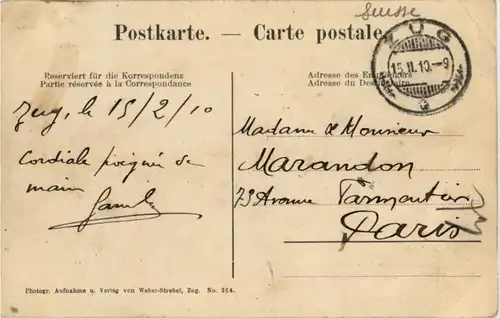 Suisse
Postkarte. — Carte postale.
ZUG
15.II.10.–9
Reserviert für die Korrespondenz
Partie réservée à la Correspondance
Adresse des Empfängers
Adresse du Destinataire
Zug, le 15/2/10
Cordiale poignée de
main
Madame & Monsieur
Marandon
73 Avenue Parmentier
Paris
Photogr. Aufnahme u. Verlag von Weber-Strebel, Zug. No. 364.